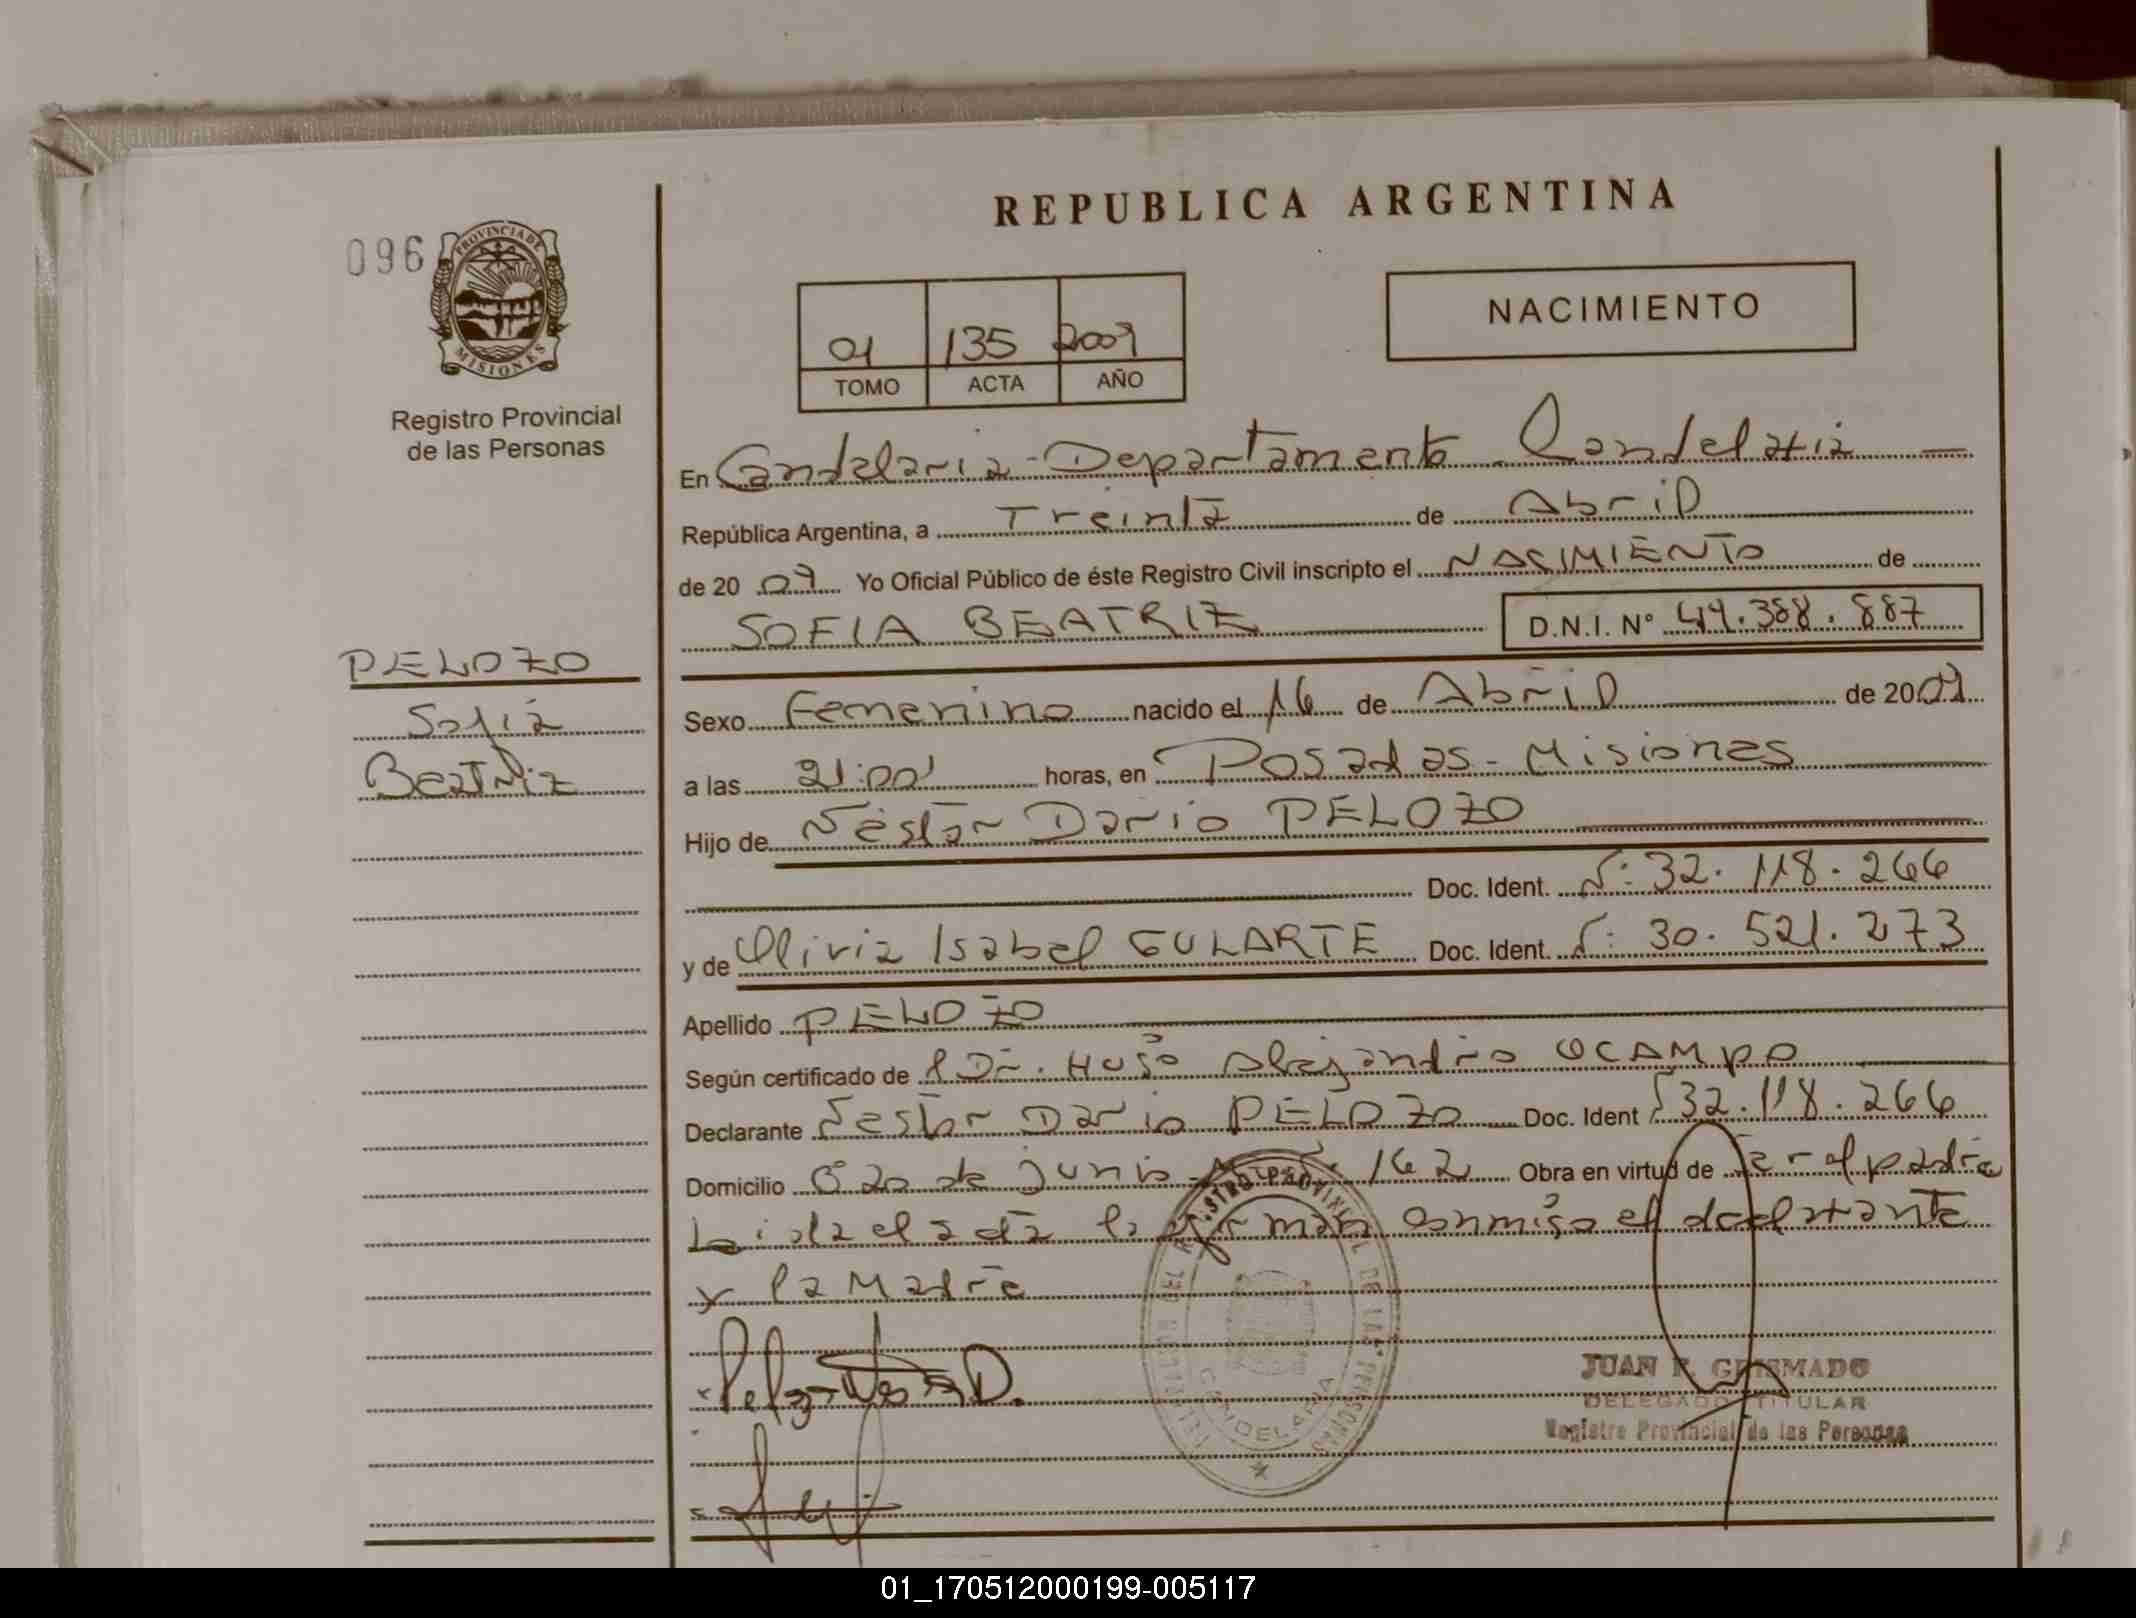 REPUBLICA ARGENTINA
096
PROVINCIA DE
MISIONES
Registro Provincial
de las Personas
NACIMIENTO
01 135 2009
TOMO ACTA AÑO
En Candelaria - Departamento Candelaria
República Argentina, a Treinta de Abril
de 20 09 Yo Oficial Público de éste Registro Civil inscripto el NACIMIENTO de
SOFIA BEATRIZ D.N.I. N° 49.388.887
PELOZO
Sofia
Beatriz
Sexo Femenino nacido el 16 de Abril de 2009
a las 21:00 horas, en Posadas - Misiones
Hijo de Néstor Dario PELOZO
Doc. Ident. N: 32.118.266
y de Oliviz Isabel GULARTE Doc. Ident. N: 30.521.273
Apellido PELOZO
Según certificado de l Dr. Hugo Alejandro OCAMPO
Declarante Nestor Dario PELOZO Doc. Ident N 32.118.266
Domicilio 20 de junio 162 Obra en virtud de ser el padre
Leida el acta la firman conmigo el declarante
y la Madre
REGISTRO PROVINCIAL DE LAS PERSONAS
CANDELARIA
JUAN GRISMADO
DELEGADO TITULAR
Registro Provincial de las Personas
01_170512000199-005117